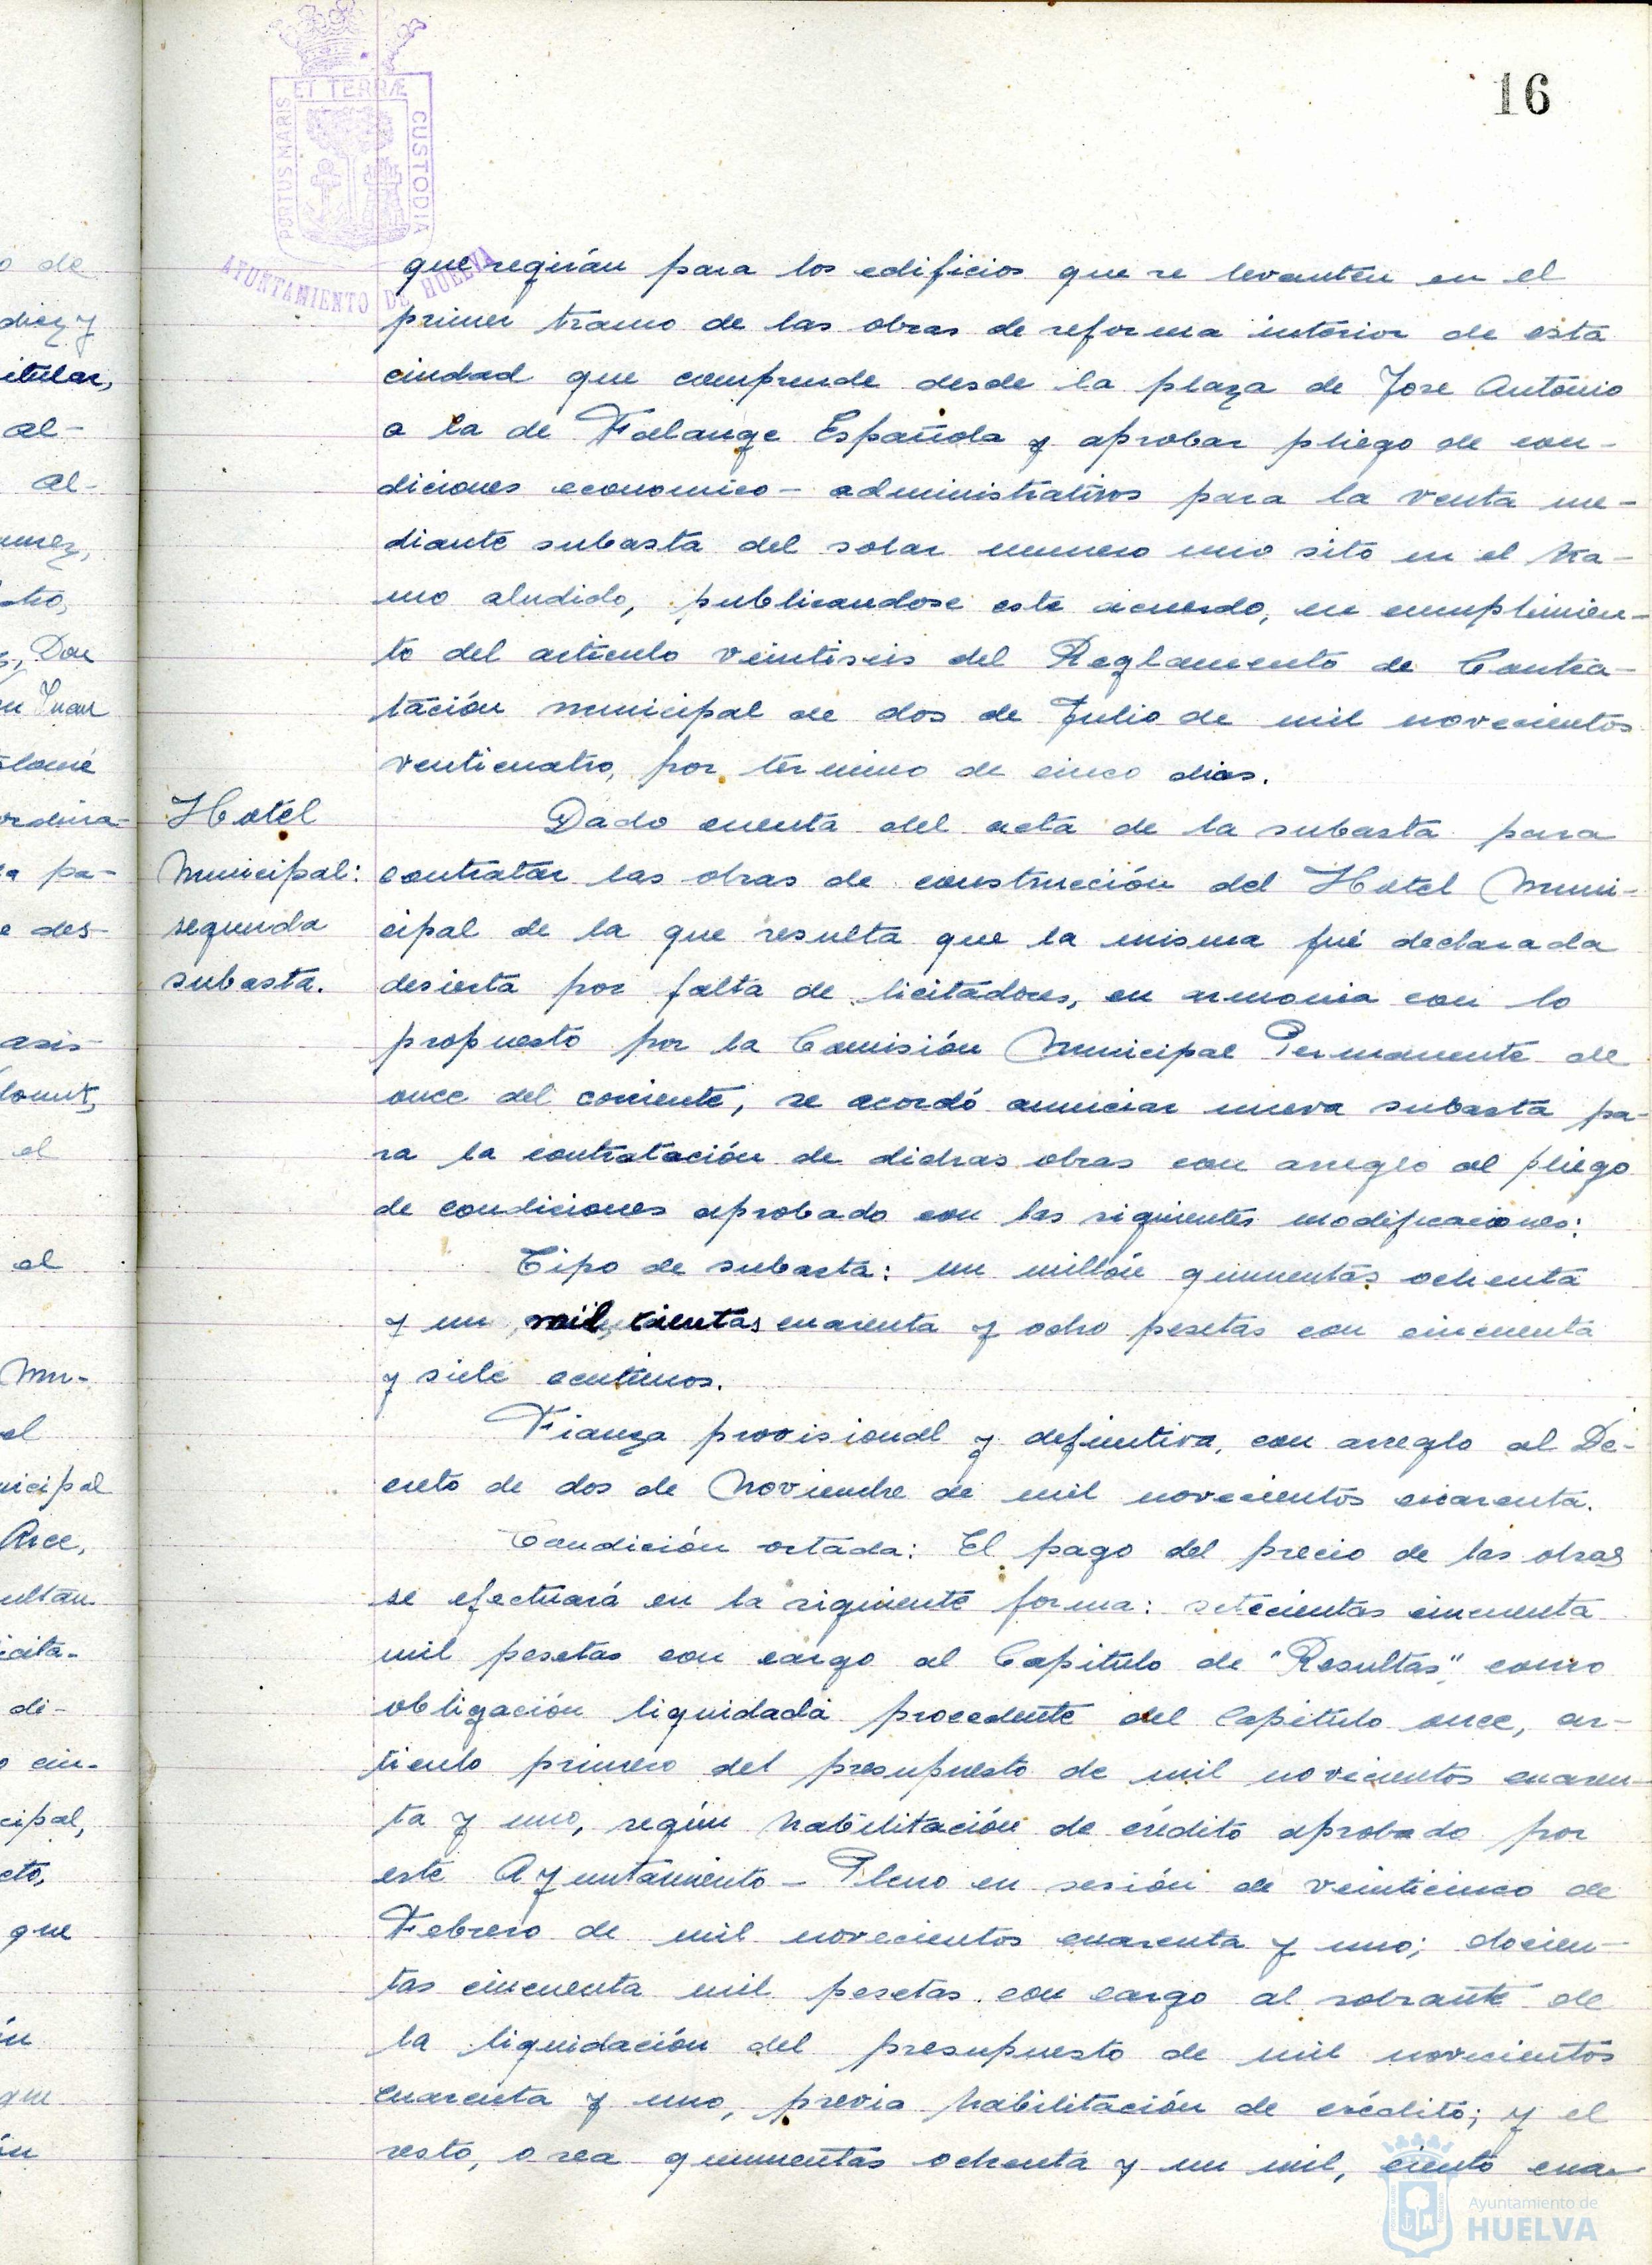 16
PORTUS MARIS ET TERRÆ CUSTODIA
AYUNTAMIENTO DE HUELVA
que regirán para los edificios que se levanten en el
primer tramo de las obras de reforma interior de esta
ciudad que comprende desde la plaza de Jose Antonio
a la de Falange Española y aprobar pliego de con-
diciones economico-administrativos para la venta me-
diante subasta del solar numero uno sito en el tra-
mo aludido, publicandose este acuerdo, en cumplimien-
to del articulo veintiseis del Reglamento de Contra-
tación municipal de dos de Julio de mil novecientos
venticuatro, por termino de cinco dias.
Hotel
Municipal:
segunda
subasta.
Dado cuenta del acta de la subasta para
contratar las obras de construcción del Hotel Muni-
cipal de la que resulta que la misma fué declarada
desierta por falta de licitadores, en armonia con lo
propuesto por la Comisión Municipal Permanente de
once del corriente, se acordó anunciar nueva subasta pa-
ra la contratación de dichas obras con arreglo al pliego
de condiciones aprobado con las siguientes modificaciones:
Tipo de subasta: un millón quinientas ochenta
y un mil cientas cuarenta y ocho pesetas con cincuenta
y siete centimos.
Fianza provisional y definitiva, con arreglo al De-
creto de dos de Noviembre de mil novecientos cuarenta.
Condición octada: El pago del precio de las obras
se efectuará en la siguiente forma: setecientas cincuenta
mil pesetas con cargo al Capitulo de "Resultas", como
obligación liquidada procedente del Capitulo once, ar-
ticulo primero del presupuesto de mil novecientos cuaren-
ta y uno, según habilitación de crédito aprobado por
este Ayuntamiento-Pleno en sesión de veinticinco de
Febrero de mil novecientos cuarenta y uno; docien-
tas cincuenta mil pesetas con cargo al sobrante de
la liquidación del presupuesto de mil novecientos
cuarenta y uno, previa habilitación de crédito; y el
resto, o sea quinientas ochenta y un mil, ciento cua-
Ayuntamiento de
HUELVA
o de
diez y
itular,
al-
al-
tro,
Don
Juan
pa-
e des-
asis-
el
el
Mu-
el
nicipal
Arce,
ultan
icita-
di-
o cin-
cipal,
cto,
que